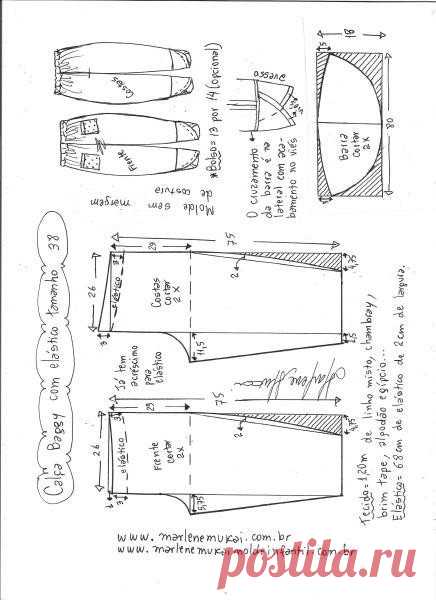 Calça Baggy com elástico tamanho 38
Molde sem margem
de costura
*Bolso = 13 por 14 (opcional)
Costas
Frente
O cruzamento
da barra é na
lateral com aca-
bamento no viés
avesso
viés
18
5
Barra
cortar
2x
80
75
29
26
3
3
elástico
Costas
cortar
2x
2
4,75
11,5
Já tem
acréscimo
para
elástico
75
29
26
1
3
3
elástico
Frente
cortar
2x
2
5,75
Marlene Mukai
Tecido = 1,20m de linho misto, chambray,
brim tape, algodão egípcio...
Elástico = 68cm de elástico de 2cm de largura.
www.marlenemukai.com.br
www.marlenemukaimoldeinfantil.com.br
postila.ru